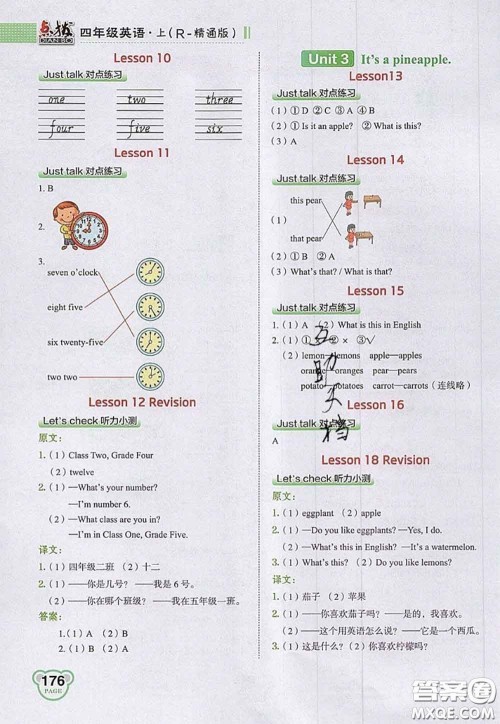 点拨
DIANBO
四年级英语·上(R-精通版)
Lesson 10
Just talk 对点练习
one two three
four five six
Lesson 11
Just talk 对点练习
1. B
2.
3.
seven o'clock
eight five
six twenty-five
two two
Lesson 12 Revision
Let's check 听力小测
原文:
1.(1)Class Two, Grade Four
(2)twelve
2.(1)—What's your number?
—I'm number 6.
(2)—What class are you in?
—I'm in Class One, Grade Five.
译文:
1.(1)四年级二班 (2)十二
2.(1)——你是几号? ——我是 6 号。
(2)——你在哪个班级? ——我在五年级一班。
答案:
1.(1)A (2)B
2.(1)B (2)B
176
PAGE
Unit 3 It's a pineapple.
Lesson13
Just talk 对点练习
(1)①D ②C ③A ④B
(2)①Is it an apple? ②What is this?
(3)A
Lesson 14
Just talk 对点练习
this pear
(1)
that pear
(2)①B ②A
(3)What's that? / What is that?
Lesson 15
Just talk 对点练习
1.(1)A (2)What is this in English
2.(1)①× ②× ③√
(2)lemon—lemons apple—apples
orange—oranges pear—pears
potato—potatoes carrot—carrots(连线略)
Lesson 16
Just talk 对点练习
A
互助文档
Lesson 18 Revision
Let's check 听力小测
原文:
1.(1)eggplant (2)apple
2.(1)—Do you like eggplants? —Yes, I do.
(2)—What's this in English? —It's a watermelon.
3.(1)What's this? (2)Do you like lemons?
译文:
1.(1)茄子 (2)苹果
2.(1)——你喜欢茄子吗? ——是的,我喜欢。
(2)——这个用英语怎么说? ——它是一个西瓜。
3.(1)这是什么? (2)你喜欢柠檬吗?
答案圈
MXQE.COM